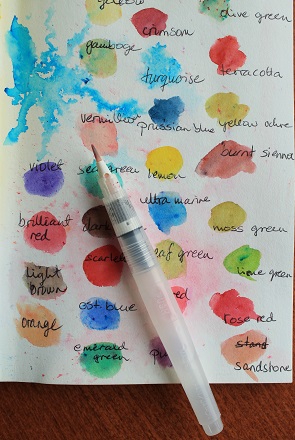 yellow
olive green
crimson
gamboge
turquoise
terracotta
vermilion
prussian blue
yellow ochre
violet
sea green
lemon
burnt sienna
brilliant
red
dark
ultramarine
moss green
light
brown
scarlet
leaf green
lime green
orange
cst. blue
red
rose red
emerald
green
pu
stand
sandstone